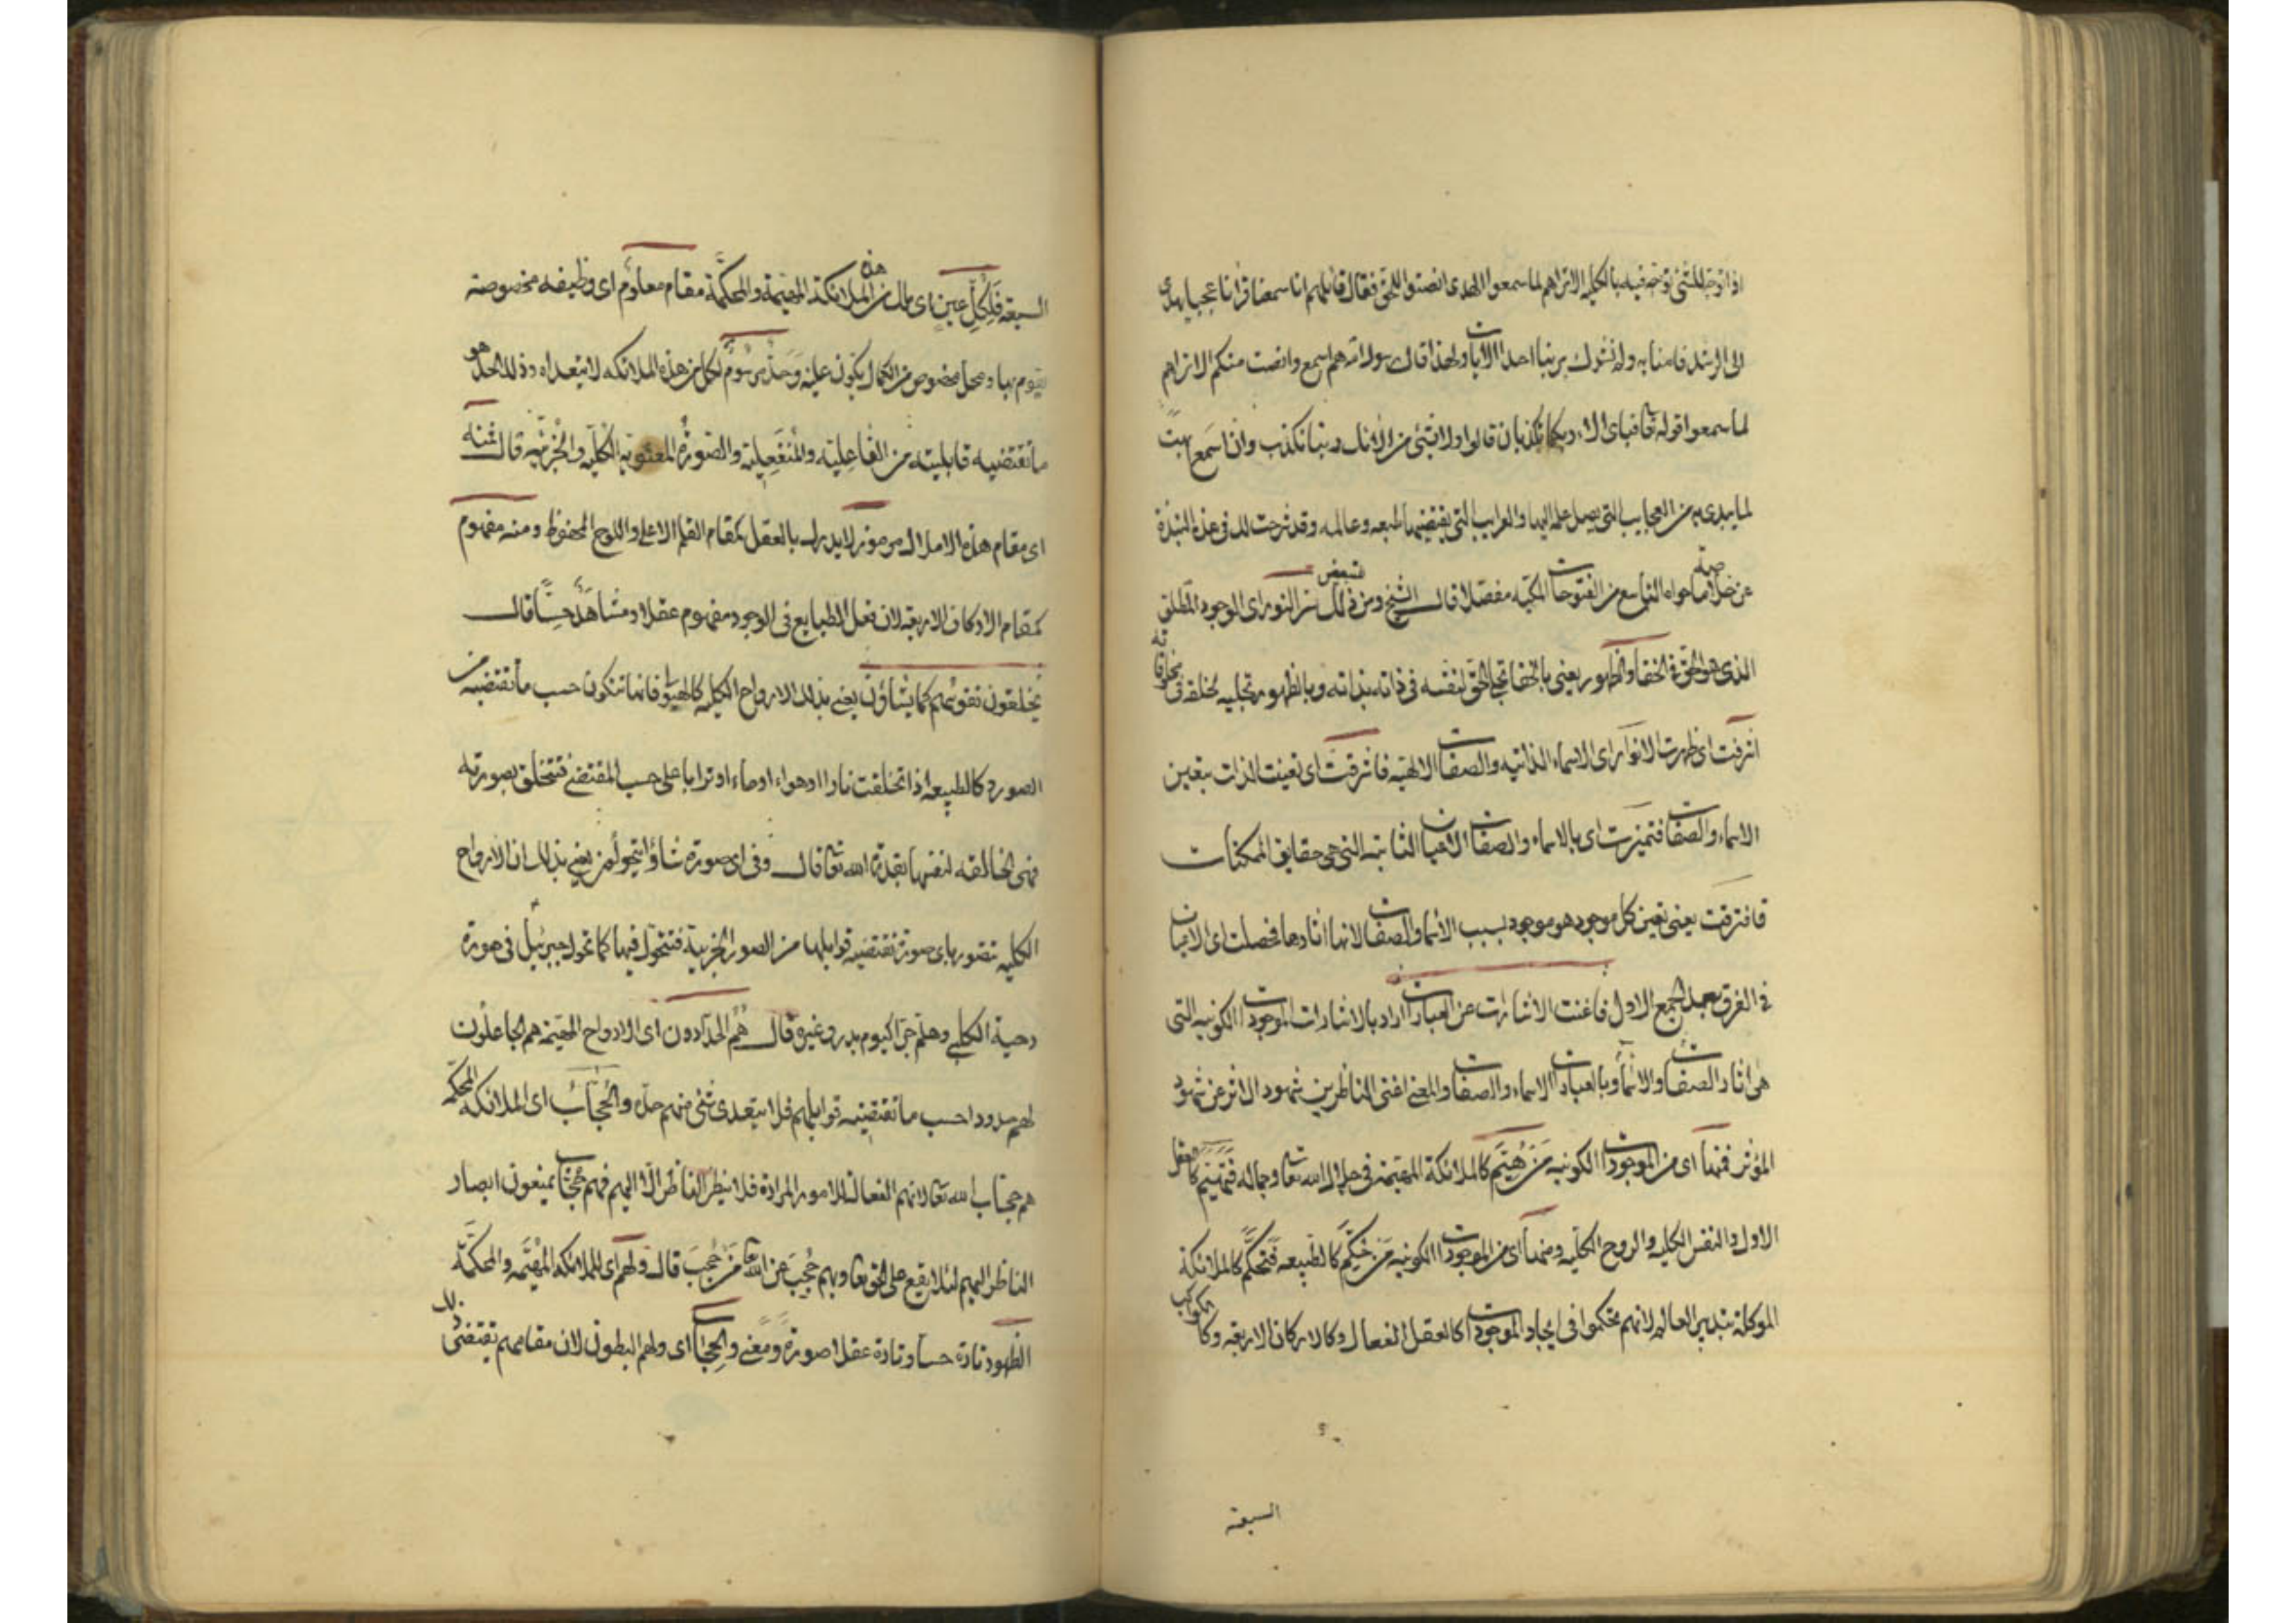 اذا توجه للشئ توجه فيه بالكليه الا تراهم لما سمعوا الهدى انصتوا للحق فقال قائلهم انا سمعنا قرانا عجبا يهدى
الى الرشد فامنا به ولن نشرك بربنا احدا الايات ولهذا قال رسول الله هم اسمع وانصت منكم الا تراهم
لما سمعوا قوله تعا فباى الاء ربكما تكذبان قالوا ولا بشئ من الائك ربنا نكذب وان اسمع بهت
لما يبدى من العجايب التى يصل علمه اليها والغرايب التى يقتضيها طبعه وعالمه وقد شرحت لك فى هذه النبذة
عن خلاصة ما حواه التاسع من الفتوحات المكيه مفصلا قال الشيخ ومن ذلك بعض سر النور اى الوجود المطلق
الذى هو الحق فى الخفا والظهور يعنى بالخفا تجلى الحق لنفسه فى ذاته بذاته وبالظهور تجليه لخلقه فى مخلوقاته
اشرقت اى ظهرت الانوار اى الاسماء الذاتيه والصفات الالهيه فاشرقت اى تعينت الذات بتعين
الاسماء والصفات فتميزت اى بالاسماء والصفات الاعيان الثابته التى هى حقايق الممكنات
فافترقت يعنى تعين كل موجود هو موجود بسبب الاسما والصفات لانها اثارها فحصلت اى الاعيان
فى الفرق بعد الجمع الاول فاغنت الاشارت عن العبارات اراد بالاشارات الموجودات الكونيه التى
هى اثار الصفات والاسما وبالعبارات الاسماء والصفات والمعنى اغنى الناظرين شهود الاثر عن شهود
المؤثر فمنها اى من الموجودات الكونيه من هيم كالملائكة المهيمة فى جلال الله تعا وجماله فتهيم كالعقل
الاول والنفس الكليه والروح الكليه ومنها اى من الموجودات الكونيه من حكم كالطبيعه فتحكم كالملائكة
الموكلة بتدبير العالم لانهم تحكموا فى ايجاد الموجودات كالعقل الفعال وكالاركان الاربعه وكالكواكب
السبعة
السبعة فلكل عين اى ملك من هذه الملائكة المهيمة والمحكمة مقام معلوم اى وظيفه مخصوصة
يقوم بها ومحل مخصوص من الكمال يكون عليه وحد مرسوم لكل من هذه الملائكه لا يتعداه وذلك الحد هو
ما تقتضيه قابليته من الفاعليه والمنفعليه والصورة المعنويه الكليه والجزئيه قال فمنه
اى مقام هذه الاملاك مرموز لا يدرك بالعقل كمقام القلم الاعلى واللوح المحفوظ ومنه مفهوم
كمقام الاركان الاربعه لان فعل الطبايع فى الوجود مفهوم عقلا ومشاهد حسا قال
يخلقون نفوسهم كما يشاؤن يعنى بذلك الارواح الكليه كالهيولى فانها تتكون حسب ما تقتضيه من
الصورة كالطبيعه اذا تخلقت نارا او هواء او ماء او ترابا على حسب المقتضى فتتخلق بصورته
فهى الخالقه لنفسها بقدرة الله تعا قال وفى اى صورة شاؤا يتحولون يعنى بذلك ان الارواح
الكليه تتصور باى صورة تقتضيه قوابلها من الصور الجزئية فتتحول فيها كما تحول جبرئيل فى صورة
دحية الكلبى وهلم جرا كيوم بدر وغيره قال هم الحدادون اى الارواح المهيمة هم الجاعلون
لهم حدودا حسب ما تقتضيه قوابلهم فلا يتعدى شئ منهم حده والحجاب اى الملائكة المحكمة
هم حجاب الله تعا لانهم الفعالة للامور المرادة فلا ينظر الناظر الا اليهم فهم حجاب يمنعون ابصار
الناظر اليهم لئلا يقع على الحق تعا وبهم حجب عن الله تعا من حجب قال ولهم اى للملائكه المهيمة والمحكمة
الظهور تارة حسا وتارة عقلا صورة ومعنى والحجاب اى ولهم البطون لان مقامهم يقتضى ذلك